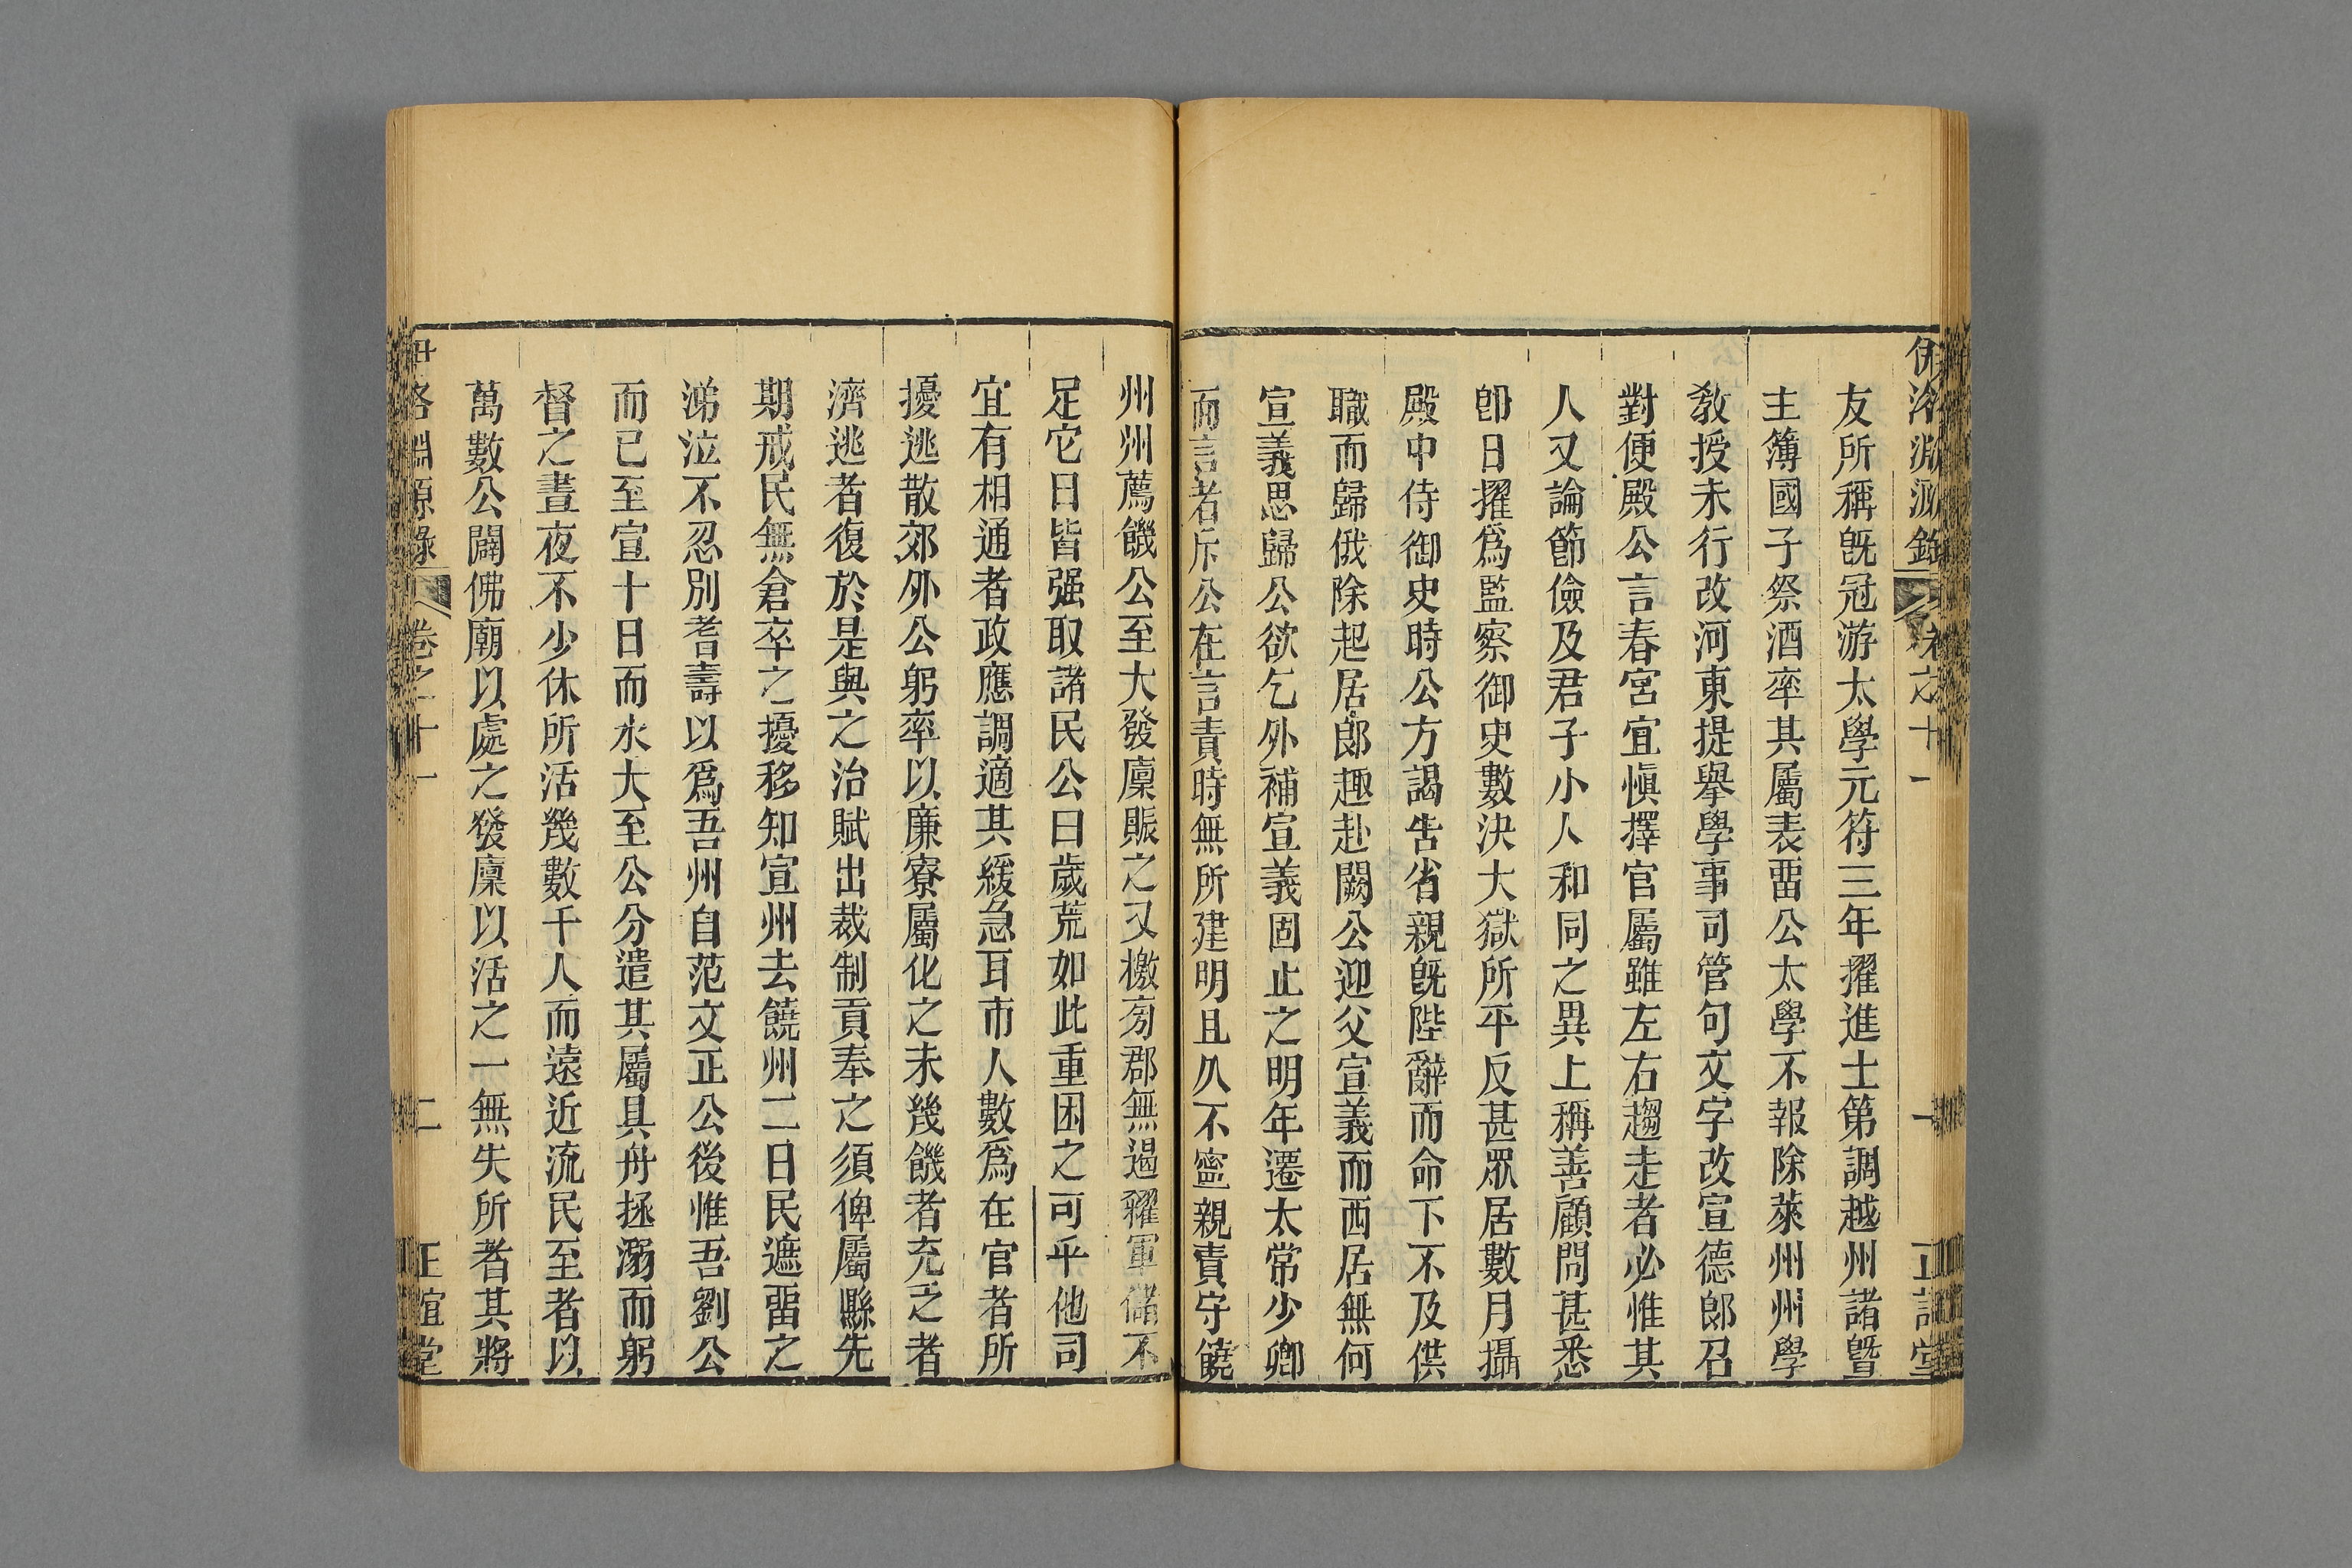 伊洛淵源錄 卷之十一 一 正誼堂
友所稱旣冠游太學元符三年擢進士第調越州諸曁
主簿國子祭酒率其屬表畱公太學不報除萊州州學
敎授未行改河東提舉學事司管句文字改宣德郎召
對便殿公言春宮宜愼擇官屬雖左右趨走者必惟其
人又論節儉及君子小人和同之異上稱善顧問甚悉
卽日擢爲監察御史數決大獄所平反甚眾居數月攝
殿中侍御史時公方謁告省親旣陛辭而命下不及供
職而歸俄除起居郎趣赴闕公迎父宣義而西居無何
宣義思歸公欲乞外補宣義固止之明年遷太常少卿
而言者斥公在言責時無所建明且久不寧親責守饒
州州薦饑公至大發廩賑之又檄旁郡無遏糴軍儲不
足它日皆强取諸民公曰歲荒如此重困之可乎他司
宜有相通者政應調適其緩急耳市人數爲在官者所
擾逃散郊外公躬率以廉寮屬化之未幾饑者充之者
濟逃者復於是與之治賦出裁制貢奉之須俾屬縣先
期戒民無倉卒之擾移知宣州去饒州二日民遮畱之
涕泣不忍別耆壽以爲吾州自范文正公後惟吾劉公
而已至宣十日而水大至公分遣其屬具舟拯溺而躬
督之晝夜不少休所活幾數千人而遠近流民至者以
萬數公闢佛廟以處之發廩以活之一無失所者其將
伊洛淵源錄 卷之十一 二 正誼堂